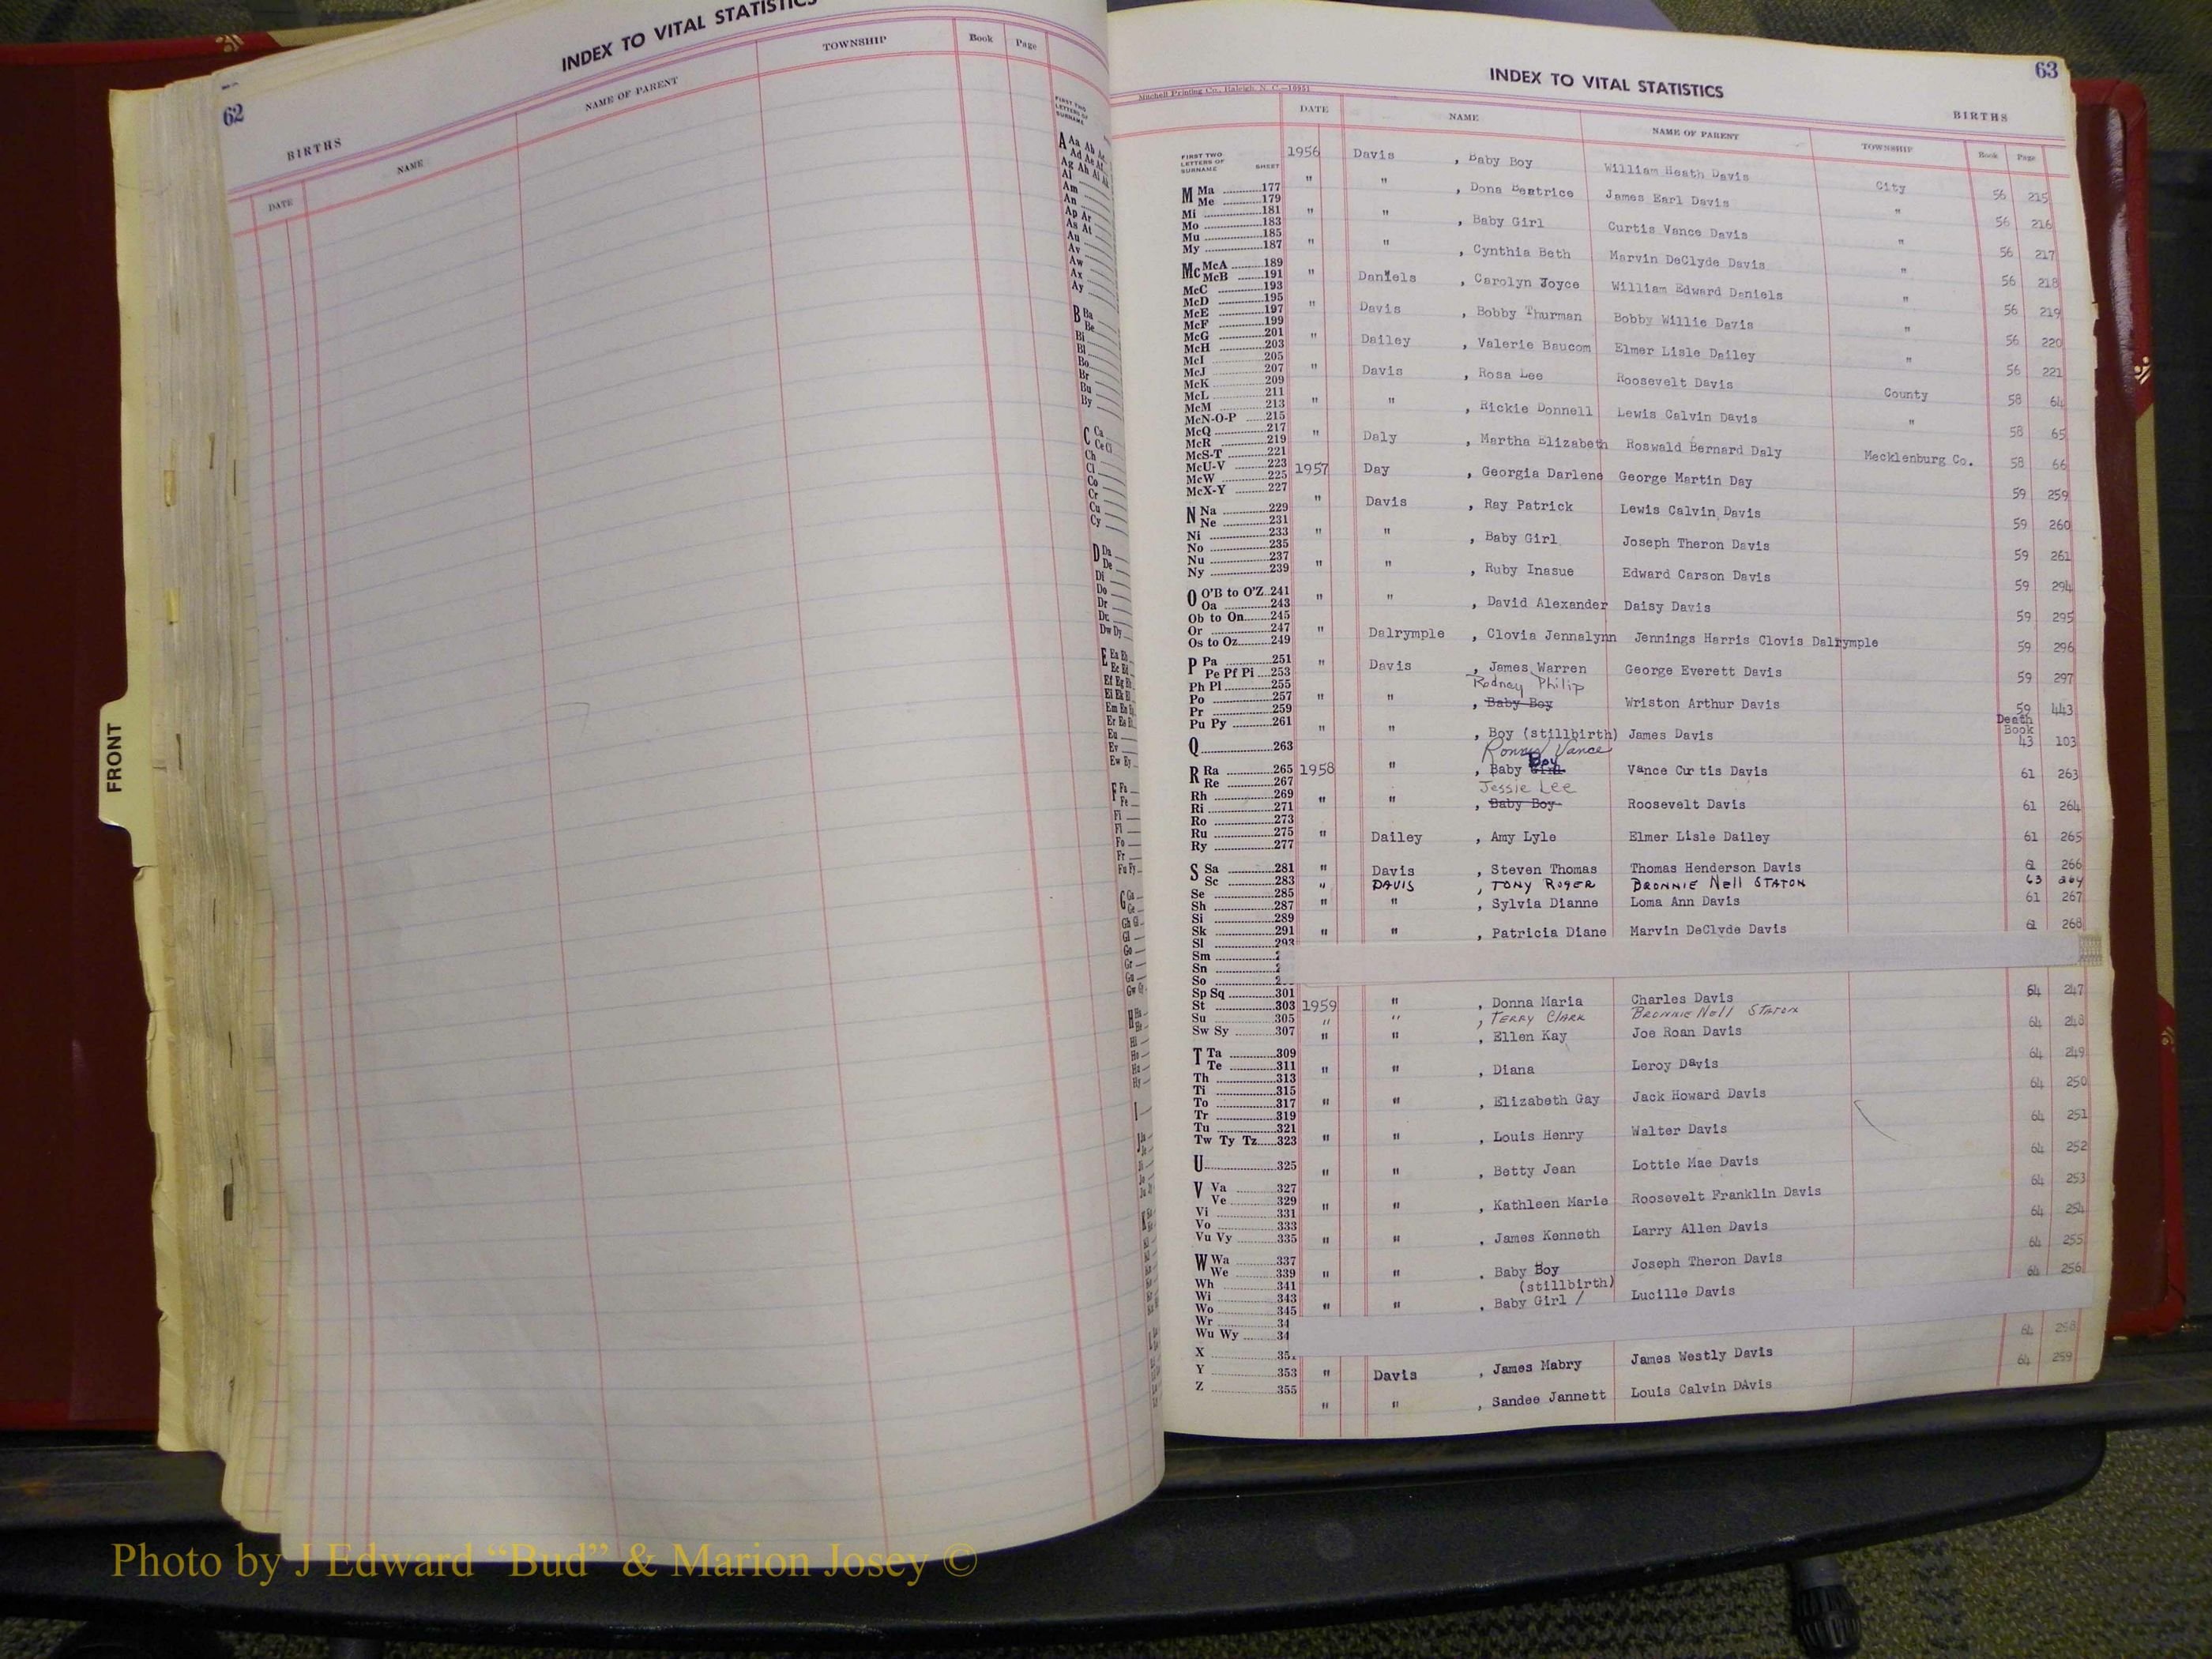 INDEX TO VITAL STATISTICS
62
BIRTHS
DATE NAME NAME OF PARENT TOWNSHIP Book Page
FIRST TWO LETTERS OF SURNAME
FRONT
INDEX TO VITAL STATISTICS
63
Mitchell Printing Co., Raleigh, N. C.
BIRTHS
DATE NAME NAME OF PARENT TOWNSHIP Book Page
1956 Davis , Baby Boy William Heath Davis City 56 215
" " , Dona Beatrice James Earl Davis " 56 216
" " , Baby Girl Curtis Vance Davis " 56 217
" " , Cynthia Beth Marvin DeClyde Davis " 56 218
" Daniels , Carolyn Joyce William Edward Daniels " 56 219
" Davis , Bobby Thurman Bobby Willie Davis " 56 220
" Dailey , Valerie Baucom Elmer Lisle Dailey " 56 221
" Davis , Rosa Lee Roosevelt Davis County 58 64
" " , Rickie Donnell Lewis Calvin Davis " 58 65
" Daly , Martha Elizabeth Roswald Bernard Daly Mecklenburg Co. 58 66
1957 Day , Georgia Darlene George Martin Day 59 259
" Davis , Ray Patrick Lewis Calvin Davis 59 260
" " , Baby Girl Joseph Theron Davis 59 261
" " , Ruby Inasue Edward Carson Davis 59 294
" " , David Alexander Daisy Davis 59 295
" Dalrymple , Clovia Jennalynn Jennings Harris Clovis Dalrymple 59 296
" Davis , James Warren George Everett Davis 59 297
Rodney Philip
" " , Baby Boy Wriston Arthur Davis 59 443
Death Book
" " , Boy (stillbirth) James Davis 43 103
Ronny Vance
Boy
1958 " , Baby Girl Vance Curtis Davis 61 263
Jessie Lee
" " , Baby Boy Roosevelt Davis 61 264
" Dailey , Amy Lyle Elmer Lisle Dailey 61 265
" Davis , Steven Thomas Thomas Henderson Davis 61 266
" DAVIS , TONY ROGER BRONNIE Nell STATON 63 204
" " , Sylvia Dianne Loma Ann Davis 61 267
" " , Patricia Diane Marvin DeClyde Davis 61 268
1959 " , Donna Maria Charles Davis 64 247
" " , TERRY CLARK BRONNIE Nell STATON
" " , Ellen Kay Joe Roan Davis 64 248
" " , Diana Leroy Davis 64 249
" " , Elizabeth Gay Jack Howard Davis 64 250
" " , Louis Henry Walter Davis 64 251
" " , Betty Jean Lottie Mae Davis 64 252
" " , Kathleen Marie Roosevelt Franklin Davis 64 253
" " , James Kenneth Larry Allen Davis 64 254
" " , Baby Boy Joseph Theron Davis 64 255
(stillbirth)
" " , Baby Girl / Lucille Davis 64 256
" Davis , James Mabry James Westly Davis 64 258
" " , Sandee Jannett Louis Calvin DAvis 64 259
FIRST TWO LETTERS OF SURNAME SHEET
M Ma 177
Me 179
Mi 181
Mo 183
Mu 185
My 187
Mc McA 189
McB 191
McC 193
McD 195
McE 197
McF 199
McG 201
McH 203
McI 205
McJ 207
McK 209
McL 211
McM 213
McN-O-P 215
McQ 217
McR 219
McS-T 221
McU-V 223
McW 225
McX-Y 227
N Na 229
Ne 231
Ni 233
No 235
Nu 237
Ny 239
O O'B to O'Z 241
Oa 243
Ob to On 245
Or 247
Os to Oz 249
P Pa 251
Pe Pf Pi 253
Ph Pl 255
Po 257
Pr 259
Pu Py 261
Q 263
R Ra 265
Re 267
Rh 269
Ri 271
Ro 273
Ru 275
Ry 277
S Sa 281
Sc 283
Se 285
Sh 287
Si 289
Sk 291
Sl 293
Sm
Sn
So
Sp Sq 301
St 303
Su 305
Sw Sy 307
T Ta 309
Te 311
Th 313
Ti 315
To 317
Tr 319
Tu 321
Tw Ty Tz 323
U 325
V Va 327
Ve 329
Vi 331
Vo 333
Vu Vy 335
W Wa 337
We 339
Wh 341
Wi 343
Wo 345
Wr 34
Wu Wy 34
X 35
Y 353
Z 355
Photo by J Edward “Bud” & Marion Josey ©